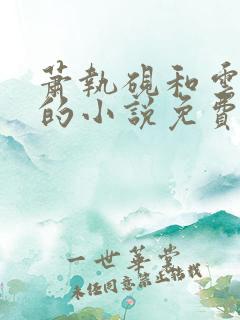 蕭執硯和雲
的小說免費
一世華裳
未經同意禁止轉載